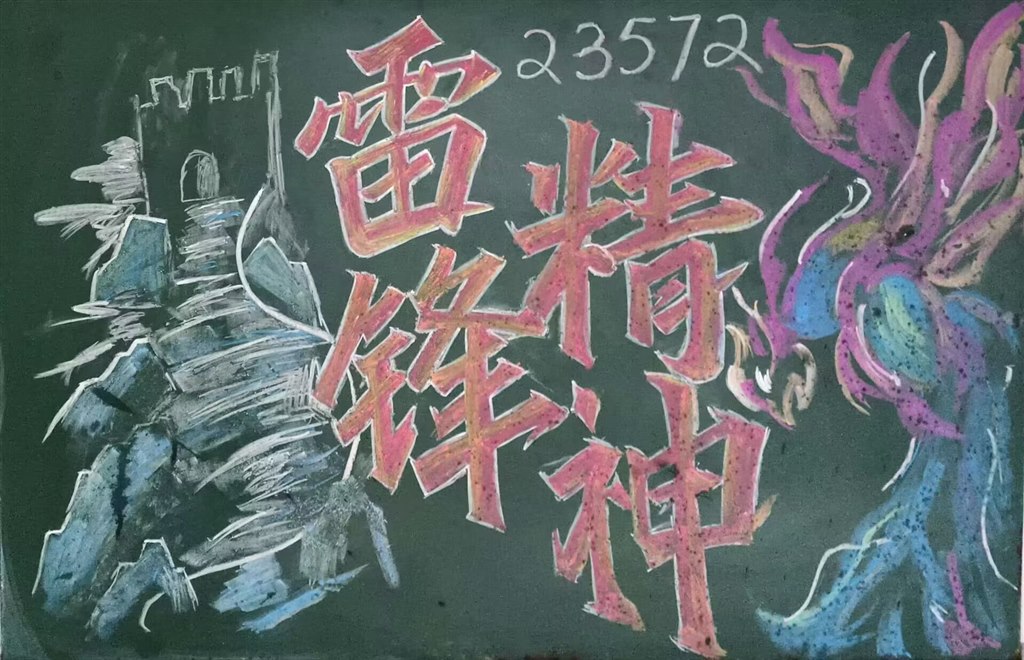 23572
雷锋
精神